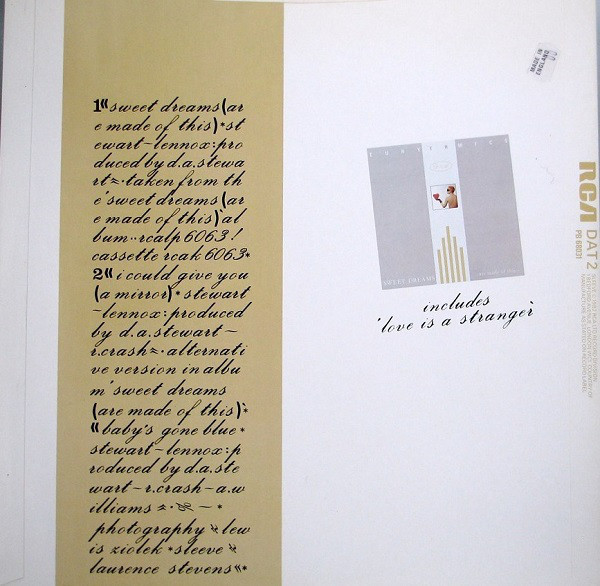 1“sweet dreams (ar
e made of this)*st
ewart-lennox:pro
duced by d.a.stewa
rt~·taken from th
e 'sweet dreams (ar
e made of this)'al
bum··rcalp 6063!
cassette rcak 6063*
2“i could give you
(a mirror)*stewart
-lennox:produced
by d.a.stewart-
r.crash~·alternati
ve version in albu
m 'sweet dreams
(are made of this)'*
“baby's gone blue*
stewart-lennox:p
roduced by d.a.ste
wart-r.crash-a.w
illiams
photography
lew
is ziolek*sleeve
laurence stevens“*
MADE IN
ENGLAND
EURYTHMICS
SWEET DREAMS
includes
'love is a stranger'
RCA DAT 2
PB 68031